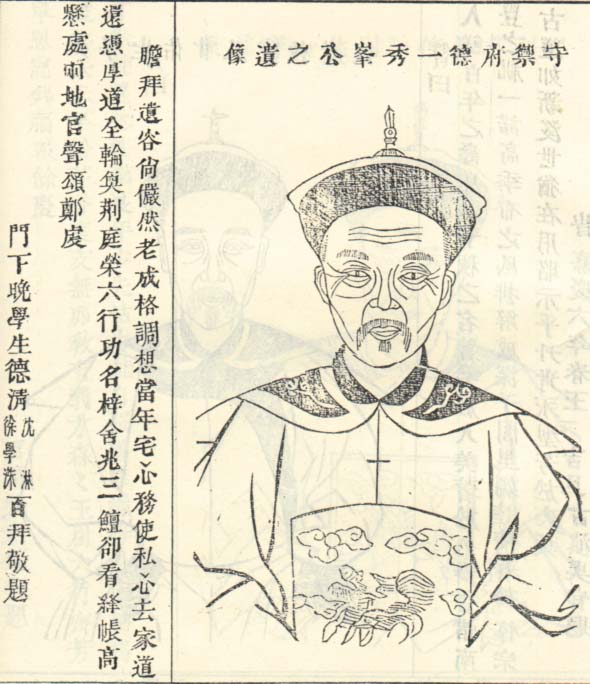 守禦府德一秀峯公之遺像
瞻拜遺容尙儼然老成格調想當年宅心務使私心去家道
還慿厚道全輪奐荊庭榮六行功名梓舍兆三鱣卻看絳帳高
懸處兩地官聲頌鄭虔
門下晚學生德清沈淋徐學洙百拜敬題